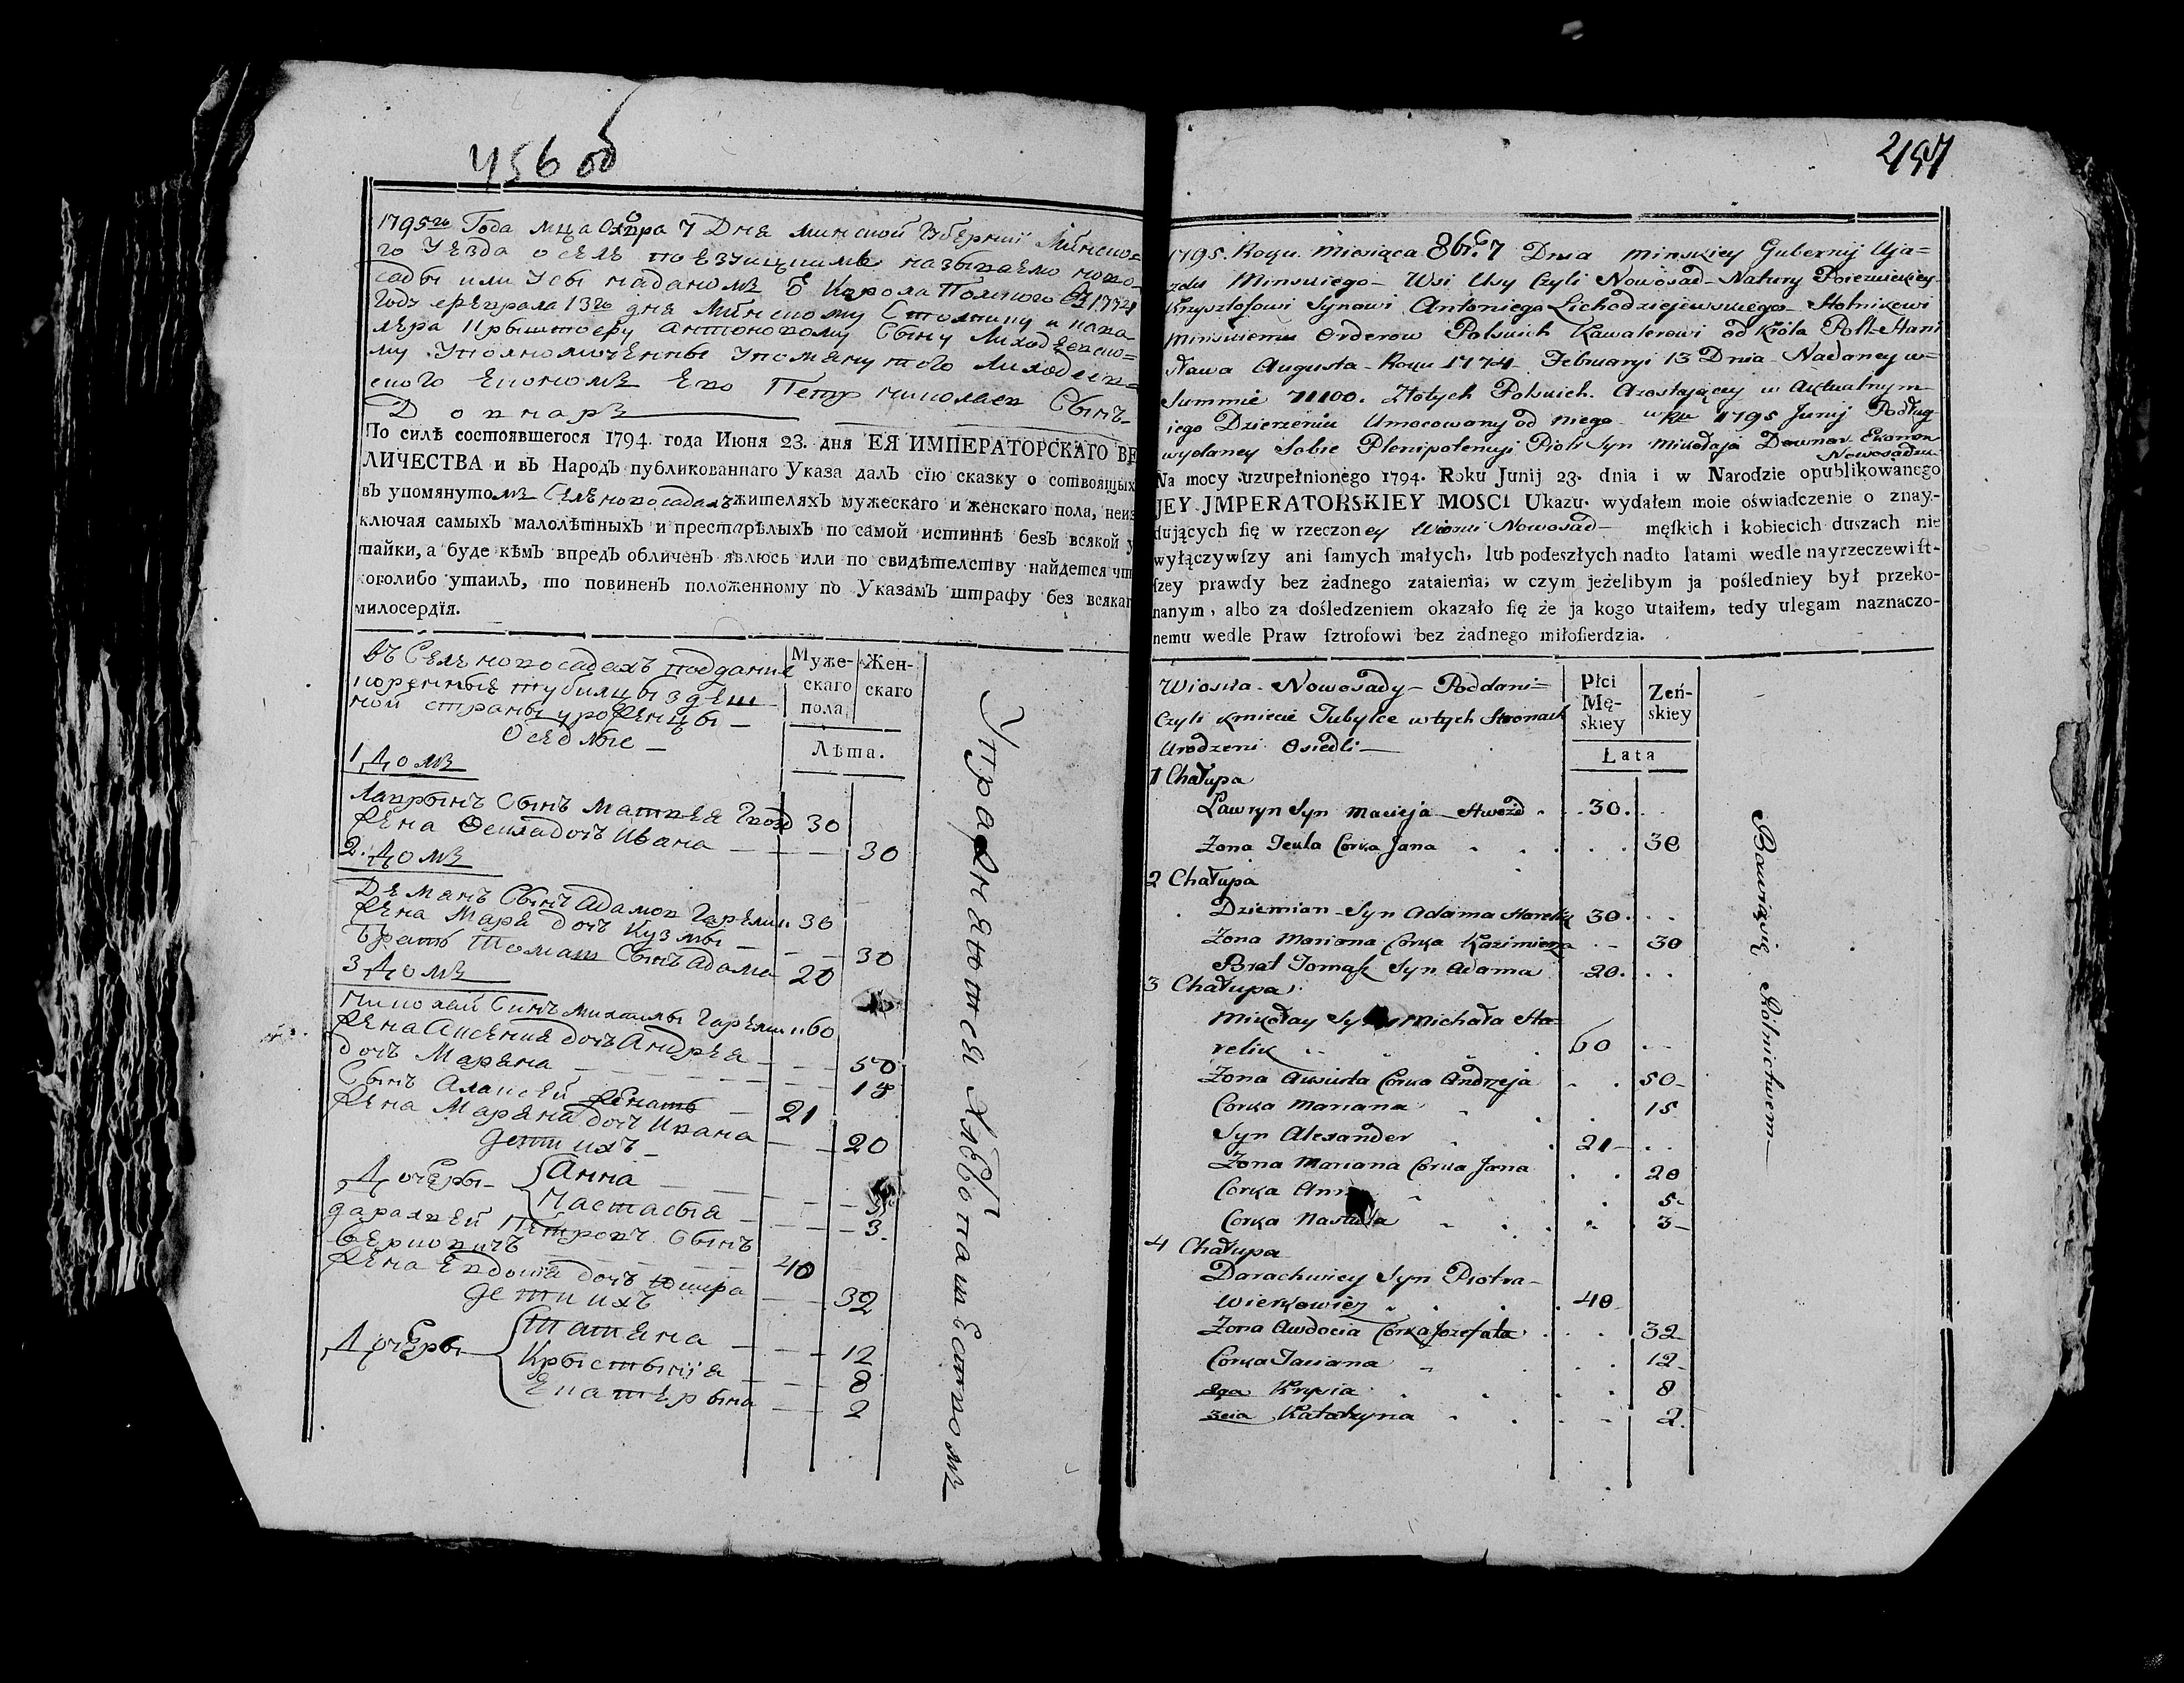 456 об
1795го Года мца Окпра 7 Дня минской Губернии Минско=
го Уезда о селе поезуицкимъ называемо ново=
сады или Усы наданомъ Ѿ Короля Полского 1774
Годъ февраля 13го дня Минскому Столнику и кава
лера Крыштофу Антоновому Сыну Лиходзевско=
му Уполномоченны упомянутого Лиходзев=
ского Економъ Его Петр николаев Сынъ
Довнаръ
По силѣ состоявшегося 1794. года Іюня 23. дня ЕЯ ИМПЕРАТОРСКАГО ВЕ
ЛИЧЕСТВА и въ Народъ публикованнаго Указа далъ сїю сказку о состоящыхъ
въ упомянутомъ Селе новосадахъ жителяхъ мужескаго и женскаго пола, неиз
ключая самыхъ малолѣтныхъ и престарѣлыхъ по самой истиннѣ безъ всякой у
тайки, а буде кѣмъ впредъ обличенъ явлюсь или по свидѣтелству найдется что
коголибо утаилъ, то повиненъ положенному по Указамъ штрафу без всякаг
милосердїя.
въ Селе новосадахъ подданые
коренные тубилцы здеш
ной страны уроженцы
Оседлые
Муже-
скаго
пола,
Жен-
скаго
Лѣта.
1 Домъ
Лаврынъ Сынъ Матвея Гвозд 30
жена Фекла дочъ Ивана 30
2. Домъ
Демянъ Сынъ Адамов Гарелик 30
жена Маря дочъ Кузмы 30
Братъ Томаш Сынъ Адама 20
3 Домъ
Николай Сынъ Михаилы Гарелик 60
жена Аксеня дочъ Андрея 50
дочъ Маряна 15
Сынъ Алексей женатъ 21
жена Маряна дочъ Ивана 20
дети ихъ
Дочеры Анна 5
Настасыя 3
дарахвей Петровъ Сынъ
Верковичъ 40
жена Евдокия дочъ 32
дети ихъ
Дочеры Татяна 12
Крыстыния 8
Екатерына 2
Упражняются Хлебопашеством
457
1795. Roku. Miesiąca 8br. 7 Dnia Minskiey Gubernij Uja=
zdu Minskiego Wsi Usy Czyli Nowosad Natury Poiezuickiey
Krysztofowi Synowi Antoniego Lichodziejewskiego Stolnikowi
Minskiemu Orderow Polskich Kawalerowi od Króla Pols. Stani
sława Augusta Roku 1774 Februaryi 13 Dnia Nadaney w=
Summie 71100. Złotych Polskich. Azostaiącey w Aktualnym
iego Dzierzeniu Umocowany od niego w Rku 1795 Junij Podług
wydaney Sobie Plenipotencyi Piotr Syn Mikołaja Downar Ekonom
Nowosadzki
Na mocy uzupełnionego 1794. Roku Junij 23. dnia i w Narodzie opublikowanego
JEY JMPERATORSKIEY MOSCI Ukazu. wydałem moie oświadczenie o znay-
dujących ſię w rzeczoney Wiosce Nowosad męſkich i kobiecich duszach nie
wyłączywſzy ani ſamych małych, lub podeszłych nadto latami wedle nayrzeczewiſt-
ſzey prawdy bez żadnego zataienia; w czym jeżelibym ja poſledniey był przeko-
nanym, albo za dośledzeniem okazało ſię że ja kogo utaiłem, tedy ulegam naznaczo-
nemu wedle Praw ſztrofowi bez żadnego miłoſierdzia.
Wioska Nowosady Poddani=
Czyli Kmiecie Tubylce w tych Stronach
Urodzeni Osiedli
Płci
Mę-
skiey
Zeń-
skiey
Lata
1 Chałupa
Lawryn Syn Macieja Hwozd 30.
Zona Tekla Corka Jana 30
2 Chałupa
Dziemian Syn Adama Harelik 30.
Zona Mariana Corka Kazimierza 30
Brat Tomasz Syn Adama 20.
3 Chałupa
Mikołay Syn Michała Ha=
relik 60
Zona Auxiuta Corka Andrzeja 50
Corka Mariana 15
Syn Alexander 21
Zona Mariana Corka Jana 20
Corka Anna 5
Corka Nastazia 3
4 Chałupa
Darachwiey Syn Piotra
Wierkowicz 40
Zona Awdocia Corka Jozefata 32
Corka Taciana 12
2ga Krysia 8
3cia Katarzyna 2.
Bawią się Rolnictwem